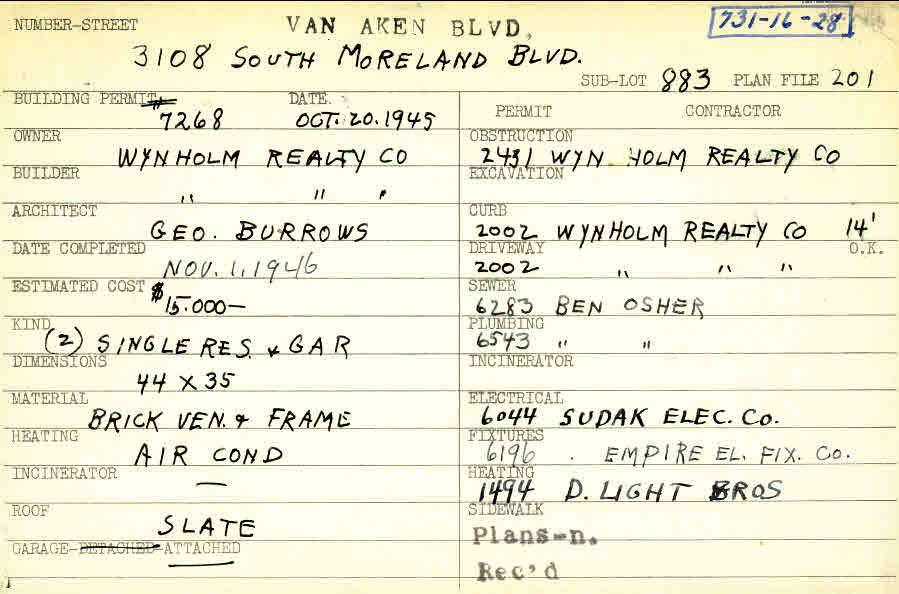 NUMBER-STREET VAN AKEN BLVD, 731-16-28
3108 SOUTH MORELAND BLVD.
SUB-LOT 883 PLAN FILE 201
BUILDING PERMIT # 7268 DATE OCT. 20. 1945
OWNER WYNHOLM REALTY CO
BUILDER " " "
ARCHITECT GEO. BURROWS
DATE COMPLETED NOV. 1, 1946
ESTIMATED COST $15.000—
KIND (2) SINGLE RES. & GAR
DIMENSIONS 44 X 35
MATERIAL BRICK VEN. & FRAME
HEATING AIR COND
INCINERATOR —
ROOF SLATE
GARAGE-DETACHED-ATTACHED
PERMIT CONTRACTOR
OBSTRUCTION 2431 WYN HOLM REALTY CO
EXCAVATION
CURB 2002 WYNHOLM REALTY CO 14'
DRIVEWAY 2002 " " " O.K.
SEWER 6283 BEN OSHER
PLUMBING 6543 " "
INCINERATOR
ELECTRICAL 6044 SUDAK ELEC. CO.
FIXTURES 6196 . EMPIRE EL. FIX. CO.
HEATING 1494 D. LIGHT BROS
SIDEWALK
Plans-n.
Rec'd